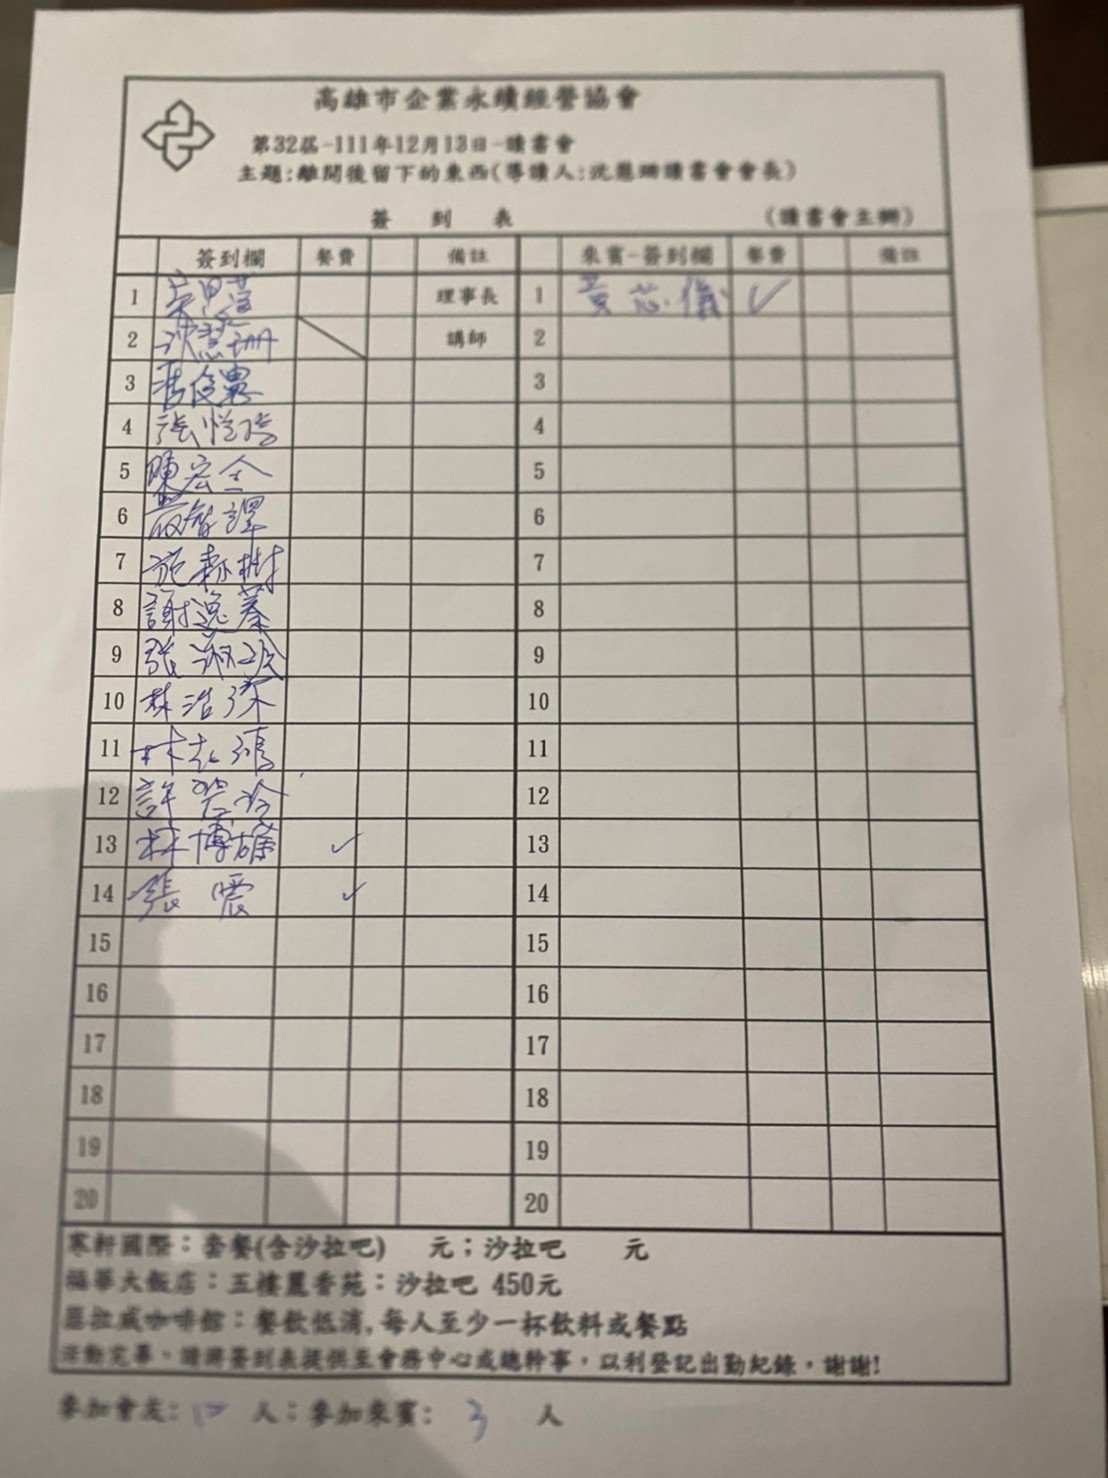 高雄市企業永續經營協會
第32屆-111年12月13日-讀書會
主題:離開後留下的東西(導讀人:沈慧珊讀書會會長)
簽 到 表 (讀書會主辦)
簽到欄 餐費 備註 來賓-簽到欄 餐費 備註
1 理事長 1 黃芯儀 ✓
2 沈慧珊 講師 2
3 3
4 張 4
5 陳宏 5
6 6
7 施 樹 7
8 謝逸蓁 8
9 張淑 9
10 林浩 10
11 林志鴻 11
12 許 玲 12
13 林博雄 ✓ 13
14 張震 ✓ 14
15 15
16 16
17 17
18 18
19 19
20 20
寒軒國際：套餐(含沙拉吧) 元；沙拉吧 元
福華大飯店：五樓麗香苑：沙拉吧 450元
咖啡館：餐飲低消,每人至少一杯飲料或餐點
活動完畢、請將簽到表提供至會務中心或總幹事，以利登記出勤紀錄，謝謝!
參加會友: 人；參加來賓: 3 人